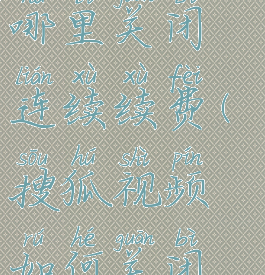 nǎ lǐ guān bì
哪里关闭
lián xù xù fèi
连续续费(
sōu hú shì pín
搜狐视频
rú hé guān bì
如何关闭